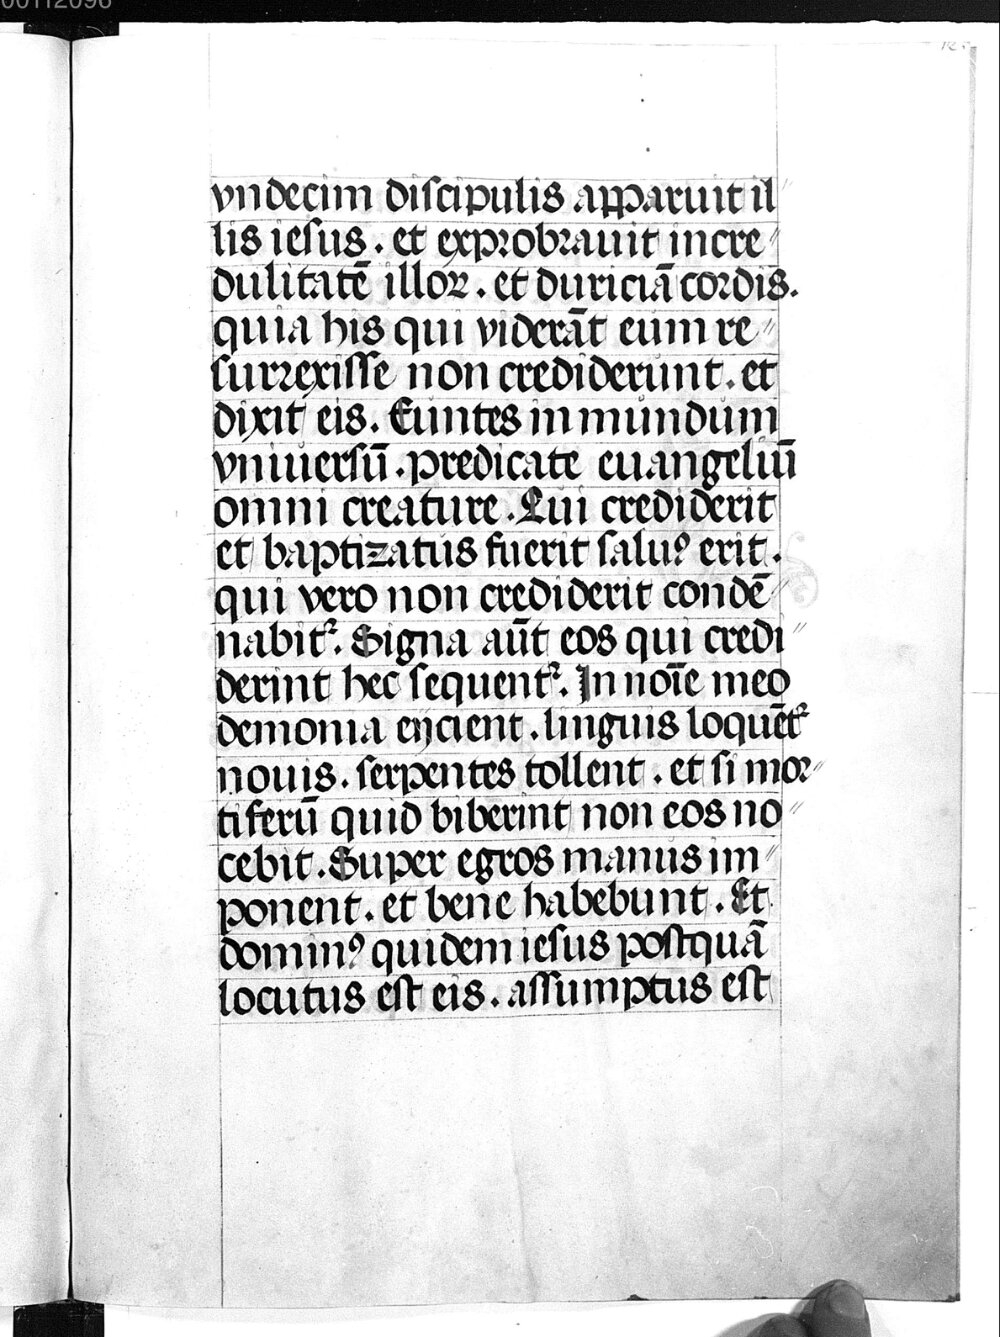 00112098
vndecim discipulis apparuit il〃
lis iesus . et exprobrauit incre〃
dulitatē illoꝝ . et duriciā cordis.
quia his qui viderāt eum re〃
surrexisse non crediderunt . et
dixit eis . Euntes in mundum
vniuersū . predicate euangeliū
omni creature . Qui crediderit
et baptizatus fuerit saluꝰ erit .
qui vero non crediderit condē〃
nabitᷣ. Signa aūt eos qui credi〃
derint hec sequentᷣ. In noīe meo
demonia eijcient . linguis loquētᷣ
nouis . serpentes tollent . et si mor〃
tiferū quid biberint non eos no〃
cebit . Super egros manus im〃
ponent . et bene habebunt . Et
dominꝰ quidem iesus postquā
locutus est eis . assumptus est